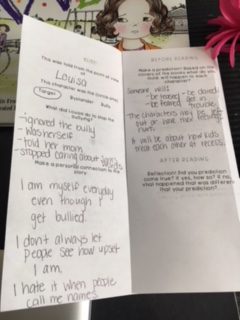 BLUBB
This was told from the point of view of
Louisa
This character was the (circle one)
Target Bystander Bully
What did Louisa do to stop the bullying?
-ignored the bully
-was herself
-told her mom
-stopped caring about
Make a personal connection to the story
I am myself everyday
even though I
get bullied.
I don't always let
people see how upset
I am.
I hate it when people
call me names
BEFORE READING
Make a prediction! Based on the covers of the books what do you think will happen to each character?
Someone will:
-be teased -be dared
-be framed -get in trouble
The characters may
out or have their
hurt.
It will be about how kids
treat each other at recess.
AFTER READING
Reflection! Did you prediction come true? If yes, how so? If no, what happened that was different that your prediction?